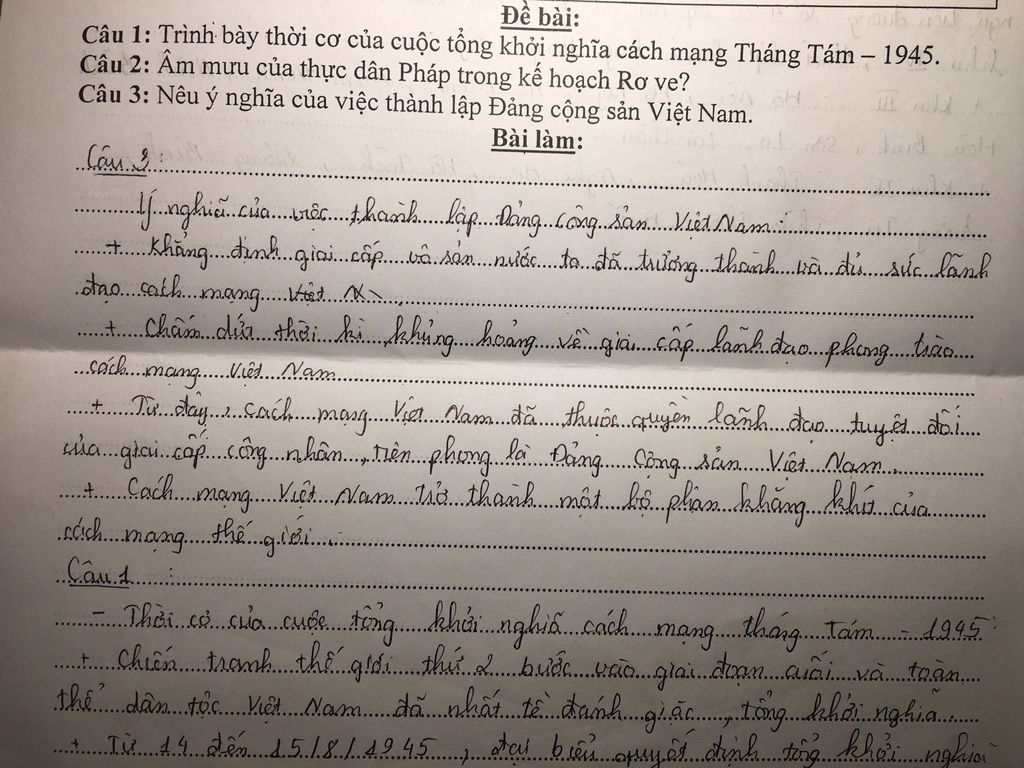 Đề bài:
Câu 1: Trình bày thời cơ của cuộc tổng khởi nghĩa cách mạng Tháng Tám – 1945.
Câu 2: Âm mưu của thực dân Pháp trong kế hoạch Rơ ve?
Câu 3: Nêu ý nghĩa của việc thành lập Đảng cộng sản Việt Nam.
Bài làm:
Câu 3 :
Ý nghĩa của việc thành lập Đảng Cộng sản Việt Nam :
+ Khẳng định giai cấp vô sản nước ta đã trưởng thành và đủ sức lãnh
đạo cách mạng Việt N
+ Chấm dứt thời kì khủng hoảng về giai cấp lãnh đạo phong trào
cách mạng Việt Nam
+ Từ đây, cách mạng Việt Nam đã thuộc quyền lãnh đạo tuyệt đối
của giai cấp công nhân, tiên phong là Đảng Cộng sản Việt Nam.
+ Cách mạng Việt Nam trở thành một bộ phận khăng khít của
cách mạng thế giới.
Câu 1 :
- Thời cơ của cuộc tổng khởi nghĩa cách mạng tháng Tám - 1945:
+ Chiến tranh thế giới thứ 2 bước vào giai đoạn cuối và toàn
thể dân tộc Việt Nam đã nhất tề đánh giặc, tổng khởi nghĩa
+ Từ 14 đến 15/8/1945, đại biểu quyết định tổng khởi nghĩa